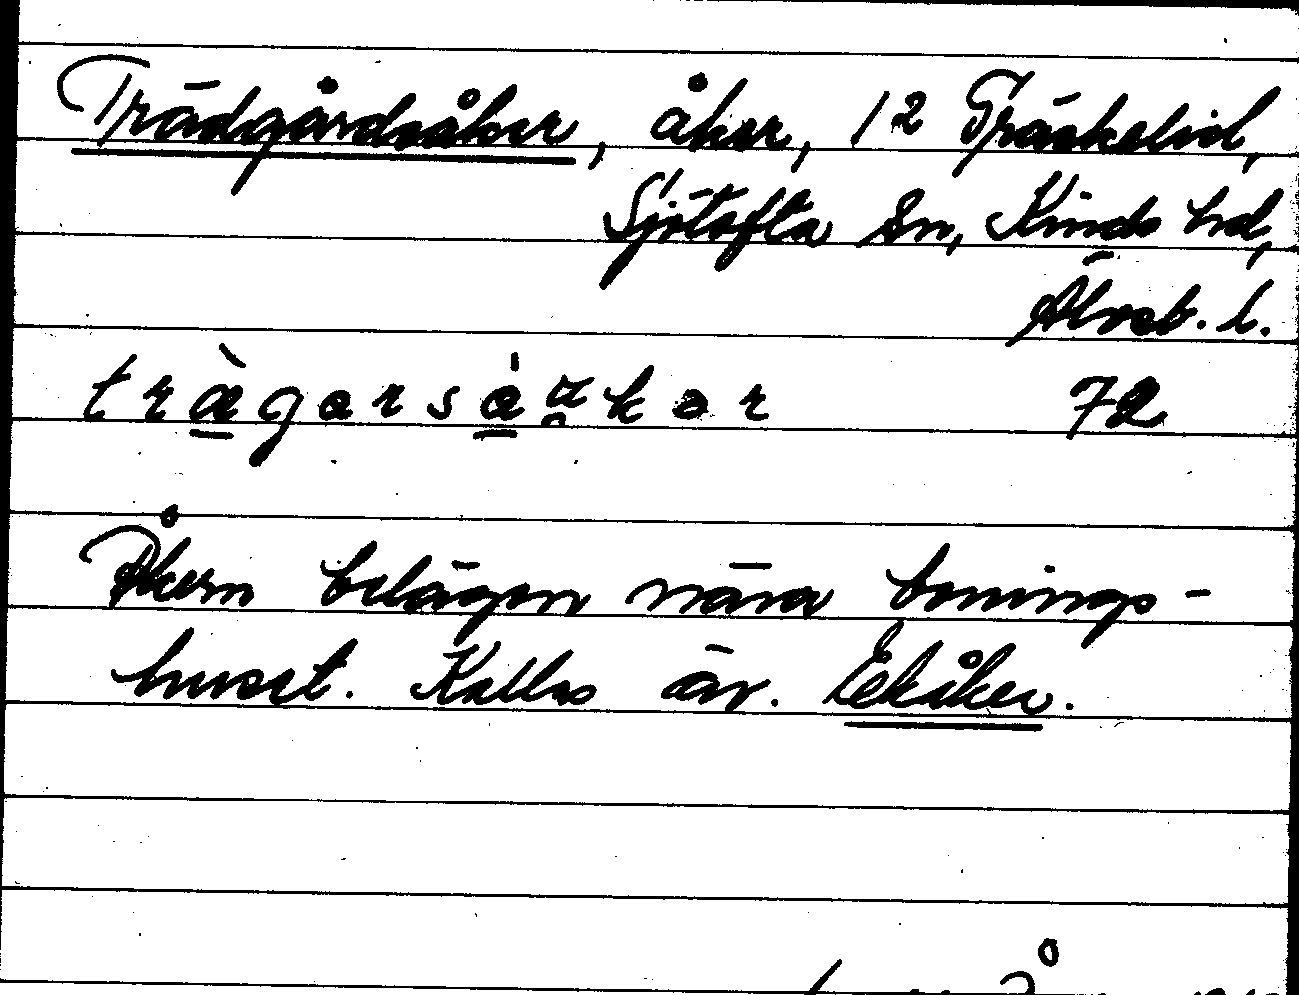 Trädgårdsåker, åker, 12 Träskelid,
Sjötofta sn, Kinds hd,
Älvsb. l.
72
Åkern belägen nära bonings-
huset. Kallas äv. Ekåker.